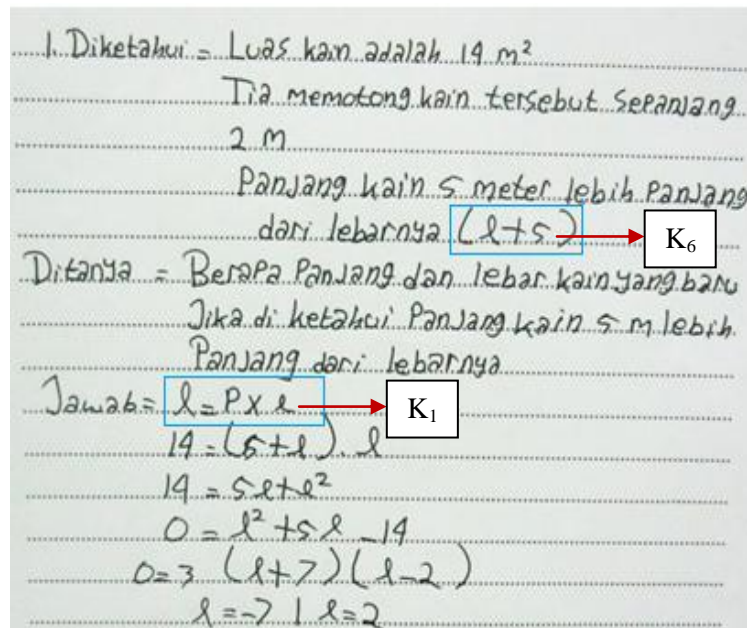 1. Diketahui = Luas kain adalah 14 m²
Tia memotong kain tersebut sepanjang
2 m
Panjang kain 5 meter lebih panjang
dari lebarnya (l+5) K₆
Ditanya = Berapa Panjang dan lebar kain yang baru
Jika di ketahui Panjang kain 5 m lebih
Panjang dari lebarnya
Jawab = l = P x l K₁
14 = (5+l). l
14 = 5l+l²
0 = l² +5l -14
0=3 (l+7)(l-2)
l=-7 | l=2